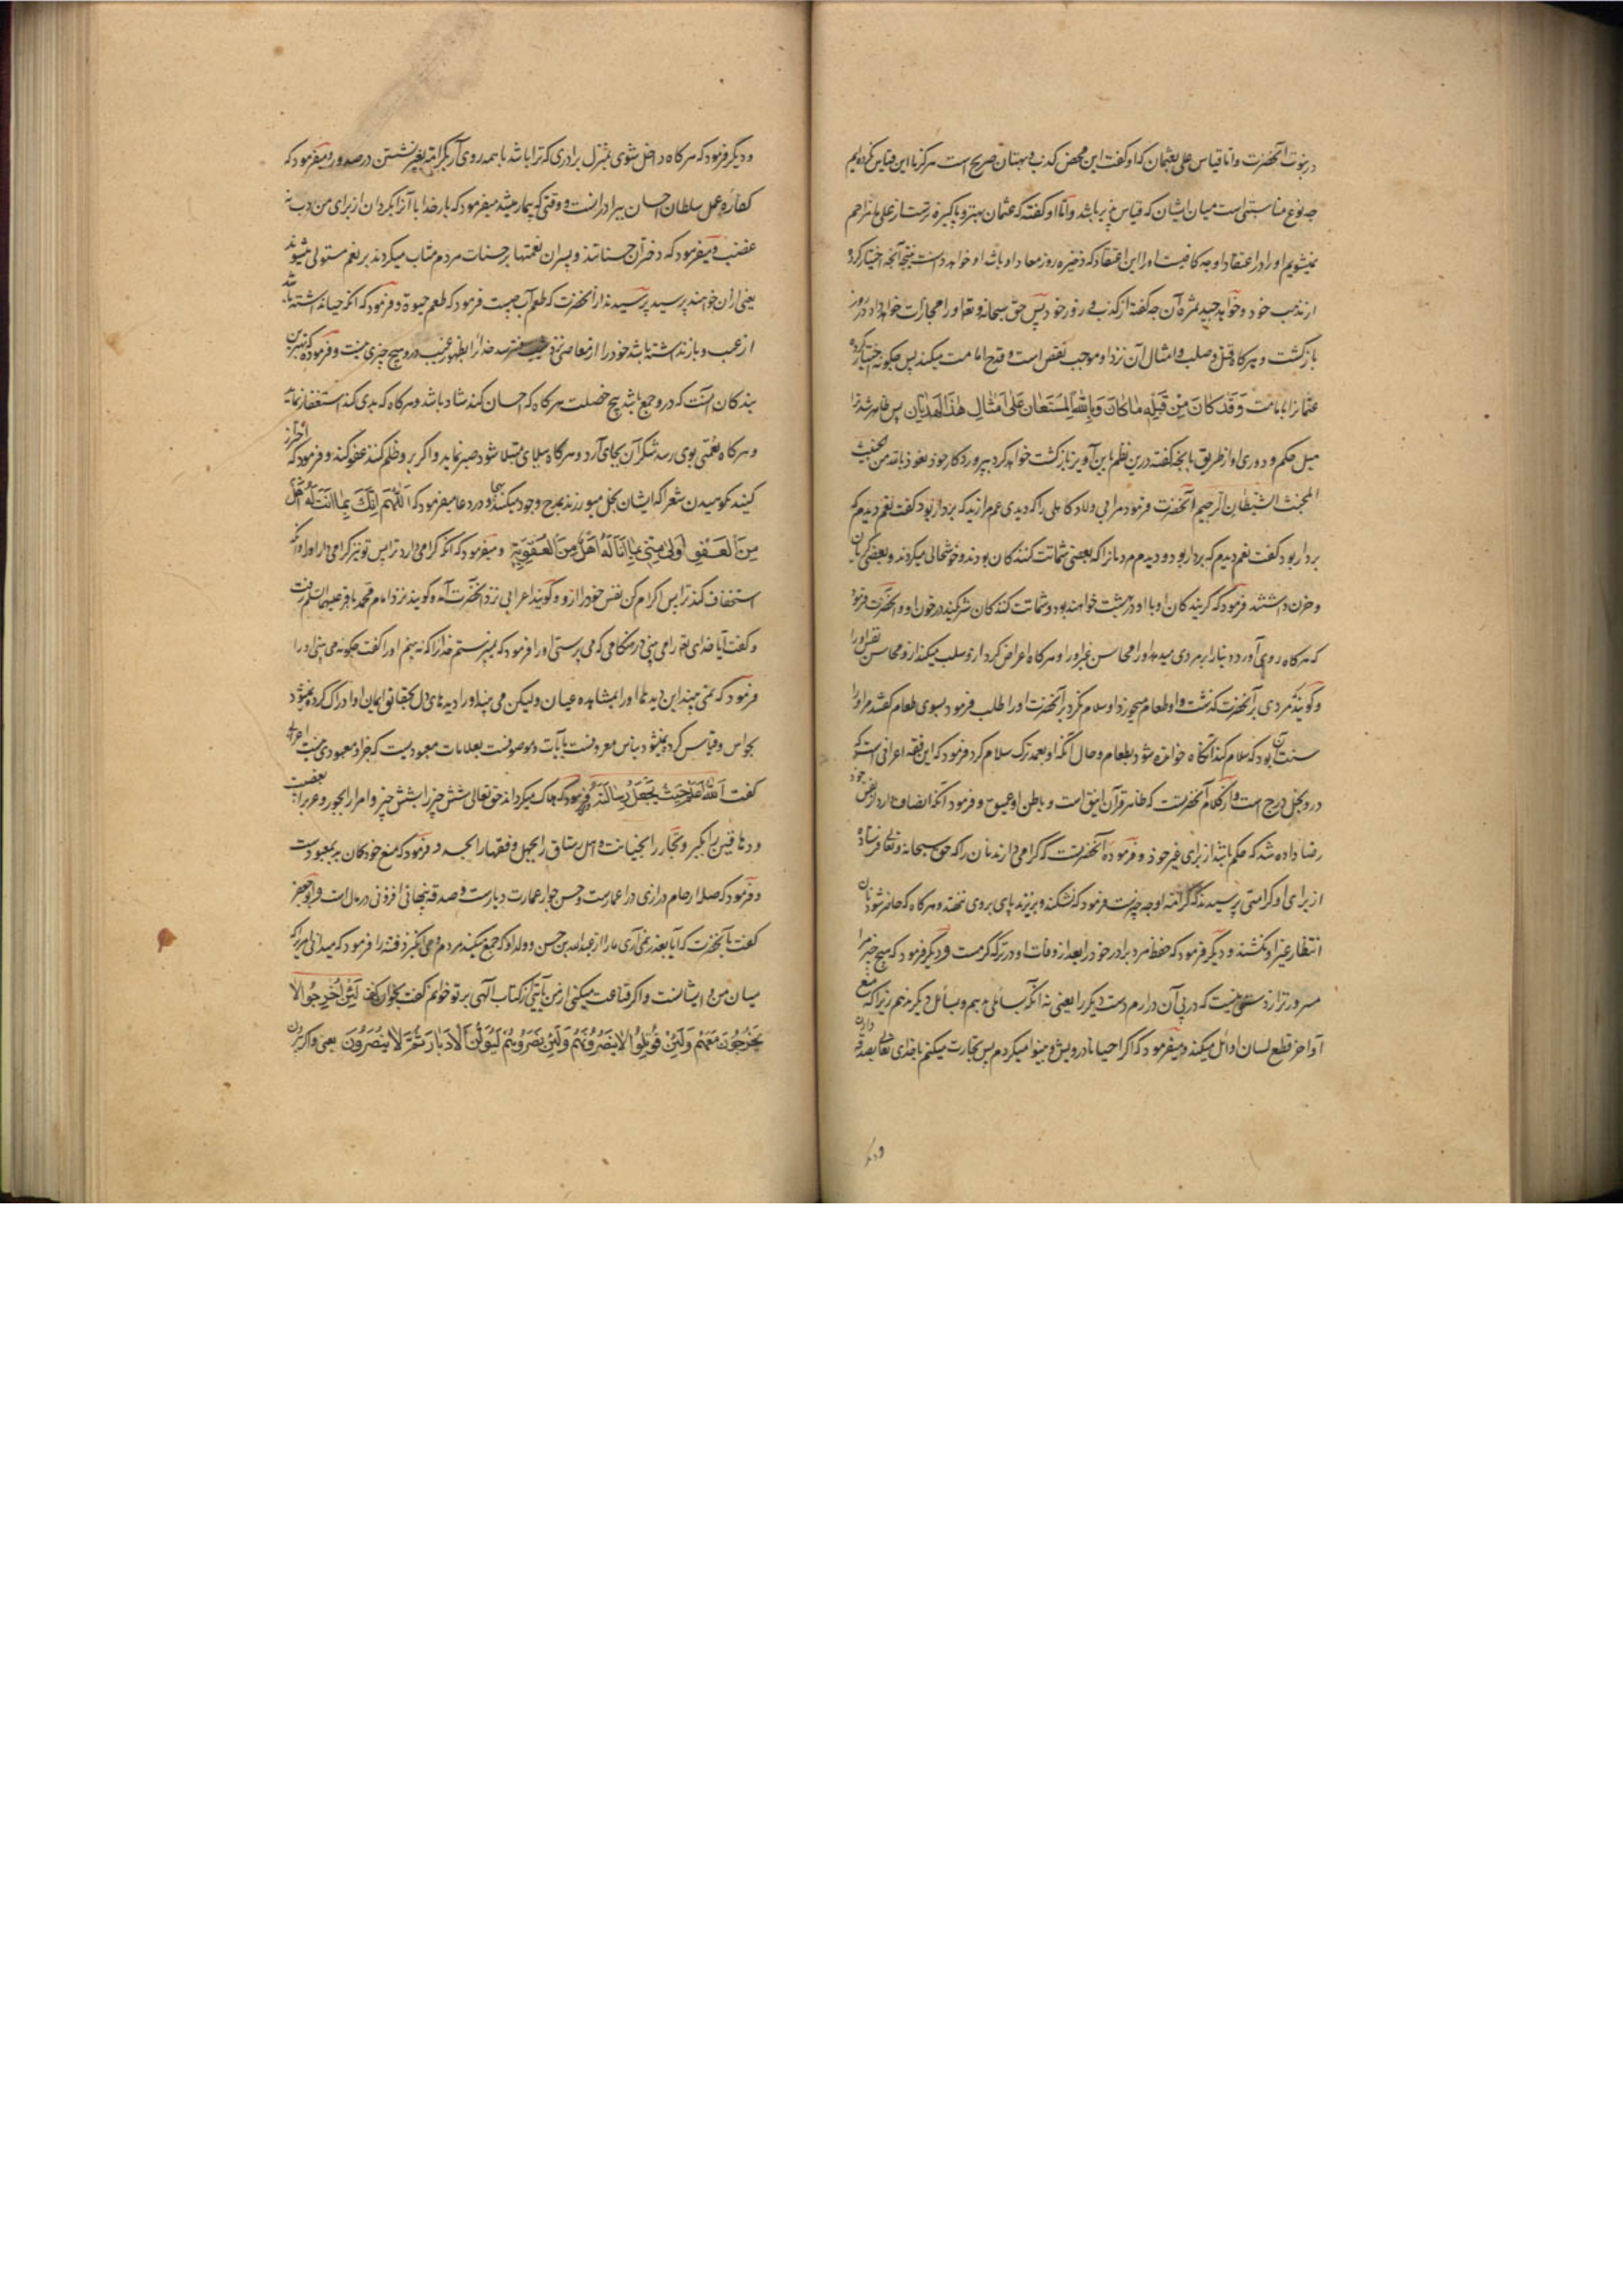 در بنوت آنحضرت و اما قیاس علی بعثمان که او گفت این محض کذب و بهتان صریح است هرگز ما این قیاس نکرده‌ایم
چه نوع مناسبتی است میان ایشان که قیاس پذیر باشد و اما او گفته که عثمان بهتر و پاکیزه‌تر است از علی ما مزاحم
نمیشویم او را در اعتقاد او چه کافیست او را این اعتقاد که ذخیره روز معاد او باشد او خواهد دانست نتیجه آنچه اختیار کرد
از مذهب خود و خواهد چید ثمره آن چه گفته از کذب و زور خود پس حق سبحانه و تعا او را مجازات خواهد داد در روز
بازگشت و هرگاه قتل و صلب و امثال آن نزد او موجب نقص است و قدح امامت میکند پس چگونه اختیار کرده
عثمانرا بامامت وَقَد كانَ مِن قَبلِهِ ما كانَ وَبِاللهِ المُستَعانِ عَلى اَمثالِ هٰذَا الهَذَيانِ پس ظاهر شد ترا
میل حکم و دوری او از طریق بآنچه گفته درین نظم باین آویز بازگشت خواهد کرد بپروردگار خود نعوذ بالله من الخبیث
المخبث الشیطان الرجیم آنحضرت فرمود مر ابی ولاد کاهلی را که دیدی عم مرا زید که بردار بود گفت نعم دیدم که
بردار بود گفت نعم دیدم که بردار بود و دیدم مردمانرا که بعضی شماتت کنندگان بودند و خوشحالی میکردند و بعضی گریان
و حزن داشتند فرمود که گریندگان او با او در بهشت خواهند بود و شماتت کنندگان شریکند در خون او و آنحضرت فرمود
که هرگاه روی آورد دنیا را بر مردی میدهد او را محاسن غیر او را و هرگاه اعراض کرد از و سلب میکند از و محاسن نفس او را
و گویند مردی بر آنحضرت گذشت و او طعام میخورد او سلام نکرد بر آنحضرت او را طلب فرمود بسوی طعام گفتند مر او را
سنت آن بود که سلام کند آنگاه خوانده شود بطعام و حال آنکه او بعمد ترک سلام کرد فرمود که این فقه اعرافی است که
درو بخل درج است و از کلام آنحضرتست که ظاهر قرآن انیق است و باطن او عمیق و فرمود آنکه انصاف دارد از نفس خود
رضا داده شد که حکم باشد از برای غیر خود و فرموده آنحضرتست که گرامی دارند نان را که حق سبحانه و تعالی فرستاده
از برای او کرامتی پرسیدند که کرامة او چه چیزست فرمود که نشکند و بریزند پای بروی ننهند و هرگاه که حاضر شود نان
انتظار غیر او نکشند و دیگر فرمود که حفظ مرد برادر خود را بعد از وفات او در ترکه کرمست و دیگر فرمود که هیچ چیز مرا
مسرورتر از دستی نیست که در پی آن دارم دست دیگر را یعنی نه آنکه بسائلی دهم و بسائل دیگر ندهم زیرا که منع
اواخر قطع لسان اوائل میکند و میفرمود که اگر احیانا درویش و بینوا میگردم پس تجارت میکنم با خدای تعالی بصدقه دادن
و دیگر
و دیگر فرمود که هرگاه داخل شوی بمنزل برادری که ترا باشد با همه روی آر بکرامة بغیر نشستن در صدور و میفرمود که
کفاره عمل سلطان احسان ببرادرانست و وقتی که بیمار میشد میفرمود که بار خدایا آنرا بگردان از برای من ادب نه
غضب و میفرمود که دختران حسناتند و پسران نعمتها بر حسنات مردم مثاب میگردند بر نعم مسئول میشوند
یعنی از ان خواهند پرسید پرسیدند از آنحضرت که طعم آب چیست فرمود که طعم حیوة و فرمود که آنکه حیا نداشته باشد
از عیب و باز نداشته باشد خود را از معاصی نزد شیب و نترسد خدا را بظهر غیب درو هیچ چیزی نیست و فرموده که بهترین
بندگان آنست که درو جمع باشد پنج خصلت هرگاه که احسان کند شاد باشد و هرگاه که بدی کند استغفار نماید
و هرگاه نعمتی بوی رسد شکر آن بجای آرد و هرگاه ببلای مبتلا شود صبر نماید و اگر برو ظلم کنند عفو کند و فرمود که احتراز
کنید نکوهیدن شعرا که ایشان بخل میورزند بمدح و جود میکنند بهجا و در دعا میفرمود که اَللّهُمَّ اِنَّكَ بِما اَنتَ لَهُ اَهلٌ
مِنَ العَفوِ اَولى مِنّي بِما اَنا لَهُ اَهلٌ مِنَ العُقوبَةِ و میفرمود که آنکه گرامی دارد ترا پس تو نیز گرامی دار او را و آنکه
استخفاف کند ترا پس اکرام کن نفس خود را از و و گویند اعرابی نزد آنحضرت آمد و گویند نزد امام محمد باقر علیهما السلم رفت
و گفت آیا خدای تعا را می بینی در هنگامی که می پرستی او را فرمود که نمیپرستم خدا را که نه بینم او را گفت چگونه می بینی او را
فرمود که نمی بیند این دیدها او را بمشاهده عیان و لیکن می بیند او را دیدهای دل بحقایق ایمان او ادراک کرده نمیشود
بحواس و قیاس کرده نمیشود بناس معروفست بآیات و موصوفست بعلامات معبودیست که جز او معبودی نیست اعرابی
گفت اَللهُ اَعلَمُ حَيثُ يَجعَلُ رِسالَتَهُ و فرمود که هلاک میگرداند حق تعالی شش چیز را بشش چیز و امرا را بجور و عرب را بعصبیت
و دهاقین را بکبر و تجار را بخیانت و اهل رستاق را بجهل و فقها را بحسد و فرمود که منع خود گمان بد بمعبودست
و فرمود که صله ارحام درازی در اعمارست و حسن جوار عمارت دیارست و صدقه پنهانی افزونی در مال است و ابو جعفر
گفت بآنحضرت که آیا بعذر نمی‌آری ما را از عبدالله بن حسن و ولد او که جمع میکنند مردم و می‌انگیزند فتنه را فرمود که میدانی امریرا که
میان من و ایشانست و اگر قناعت میکنی از من بآیتی از کتاب الهی بر تو خوانم گفت بخوان گفت لَئِن اُخرِجوا لا
يَخرُجونَ مَعَهُم وَلَئِن قوتِلوا لا يَنصُرونَهُم وَلَئِن نَصَروهُم لَيُوَلُّنَّ الاَدبارَ ثُمَّ لا يُنصَرونَ یعنی و اگر بیرون